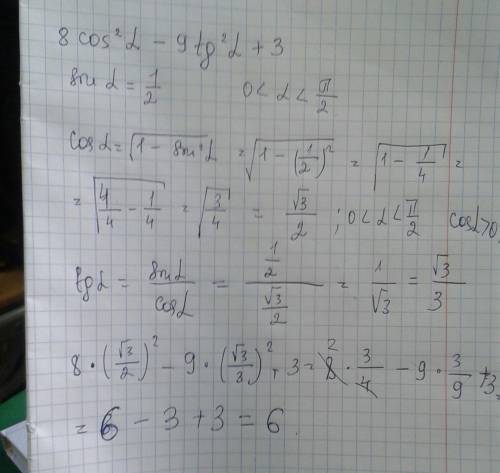 8 cos²α − 9 tg²α + 3
sin α = 1/2    0 < α < π/2
cos α = √(1 − sin²α) = √(1 − (1/2)²) = √(1 − 1/4) =
= √(4/4 − 1/4) = √(3/4) = √3/2 ; 0 < α < π/2  cosα>0
tg α = sin α/cos α = (1/2)/(√3/2) = 1/√3 = √3/3
8 · (√3/2)² − 9 · (√3/3)² + 3 = 8² · 3/4 − 9 · 3/9 + 3
= 6 − 3 + 3 = 6.